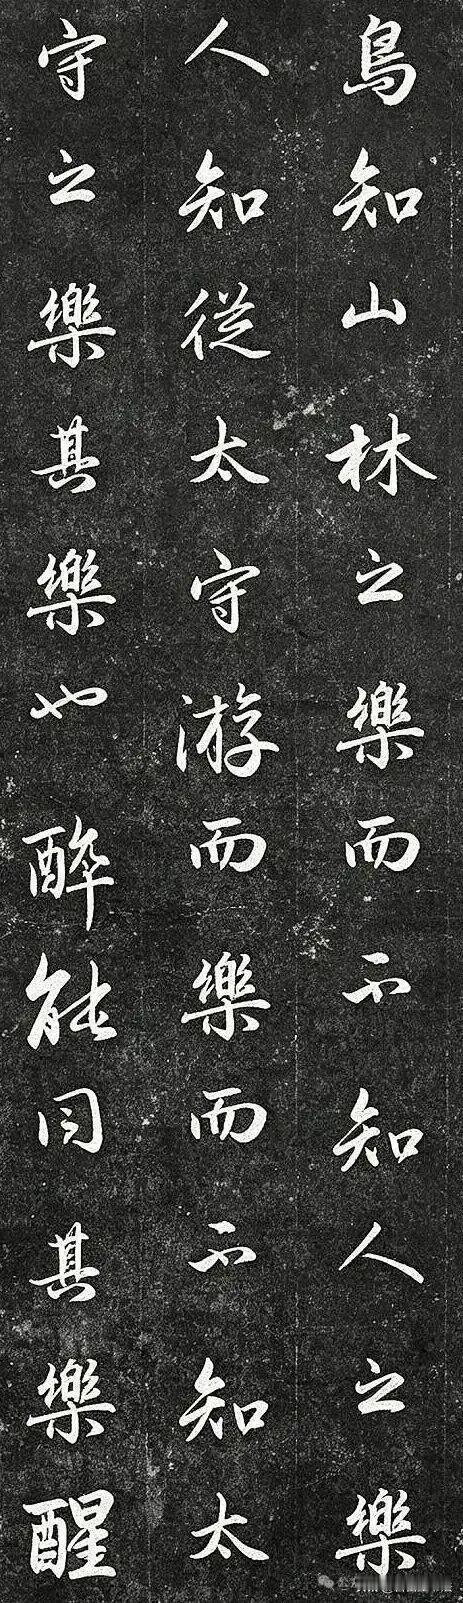 鳥知山林之樂而不知人之樂
人知從太守游而樂而不知太
守之樂其樂也醉能同其樂醒